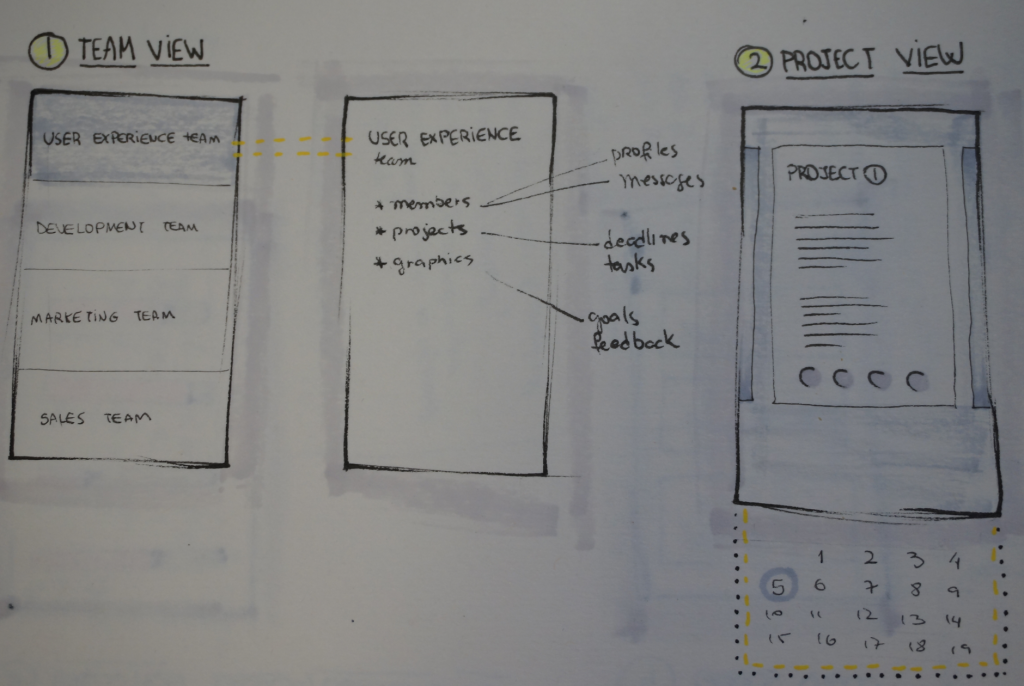 1 TEAM VIEW
USER EXPERIENCE TEAM
DEVELOPMENT TEAM
MARKETING TEAM
SALES TEAM
USER EXPERIENCE
team
* members
* projects
* graphics
profiles
messages
deadlines
tasks
goals
feedback
2 PROJECT VIEW
PROJECT 1
1 2 3 4
5 6 7 8 9
10 11 12 13 14
15 16 17 18 19